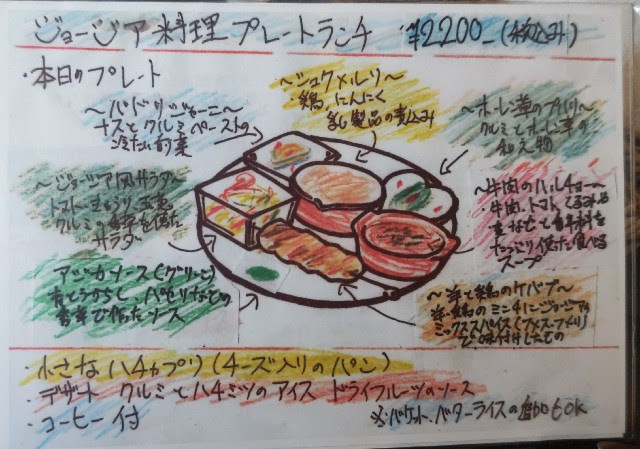 ジョージア料理プレートランチ ¥2200_(税込み)
・本日のプレート
〜バドリジャーニ〜
ナスとクルミペーストの
冷たい前菜
〜シュクメルリ〜
・鶏、にんにく
乳製品の煮込み
〜ホーレン草のプハリ〜
クルミとホーレン草
の和え物
〜ジョージア風サラダ〜
トマト、きゅうり、玉葱
クルミ、香草を使った
サラダ
〜牛肉のハルチョー〜
・牛肉、トマト、くるみ
香辛料を
たっぷり使った食べる
スープ
アジカソース(グリーン)
青とうがらし、パセリなどの
香草で作ったソース
〜羊と鶏のケバブ〜
羊・鶏のミンチにジョージアの
ミックススパイス(フメリスネリ)
で味付けしたもの
・小さなハチャプリ(チーズ入りのパン)
・デザート クルミとハチミツのアイス ドライフルーツのソース
・コーヒー付
※バケット、バターライスの追加もOK